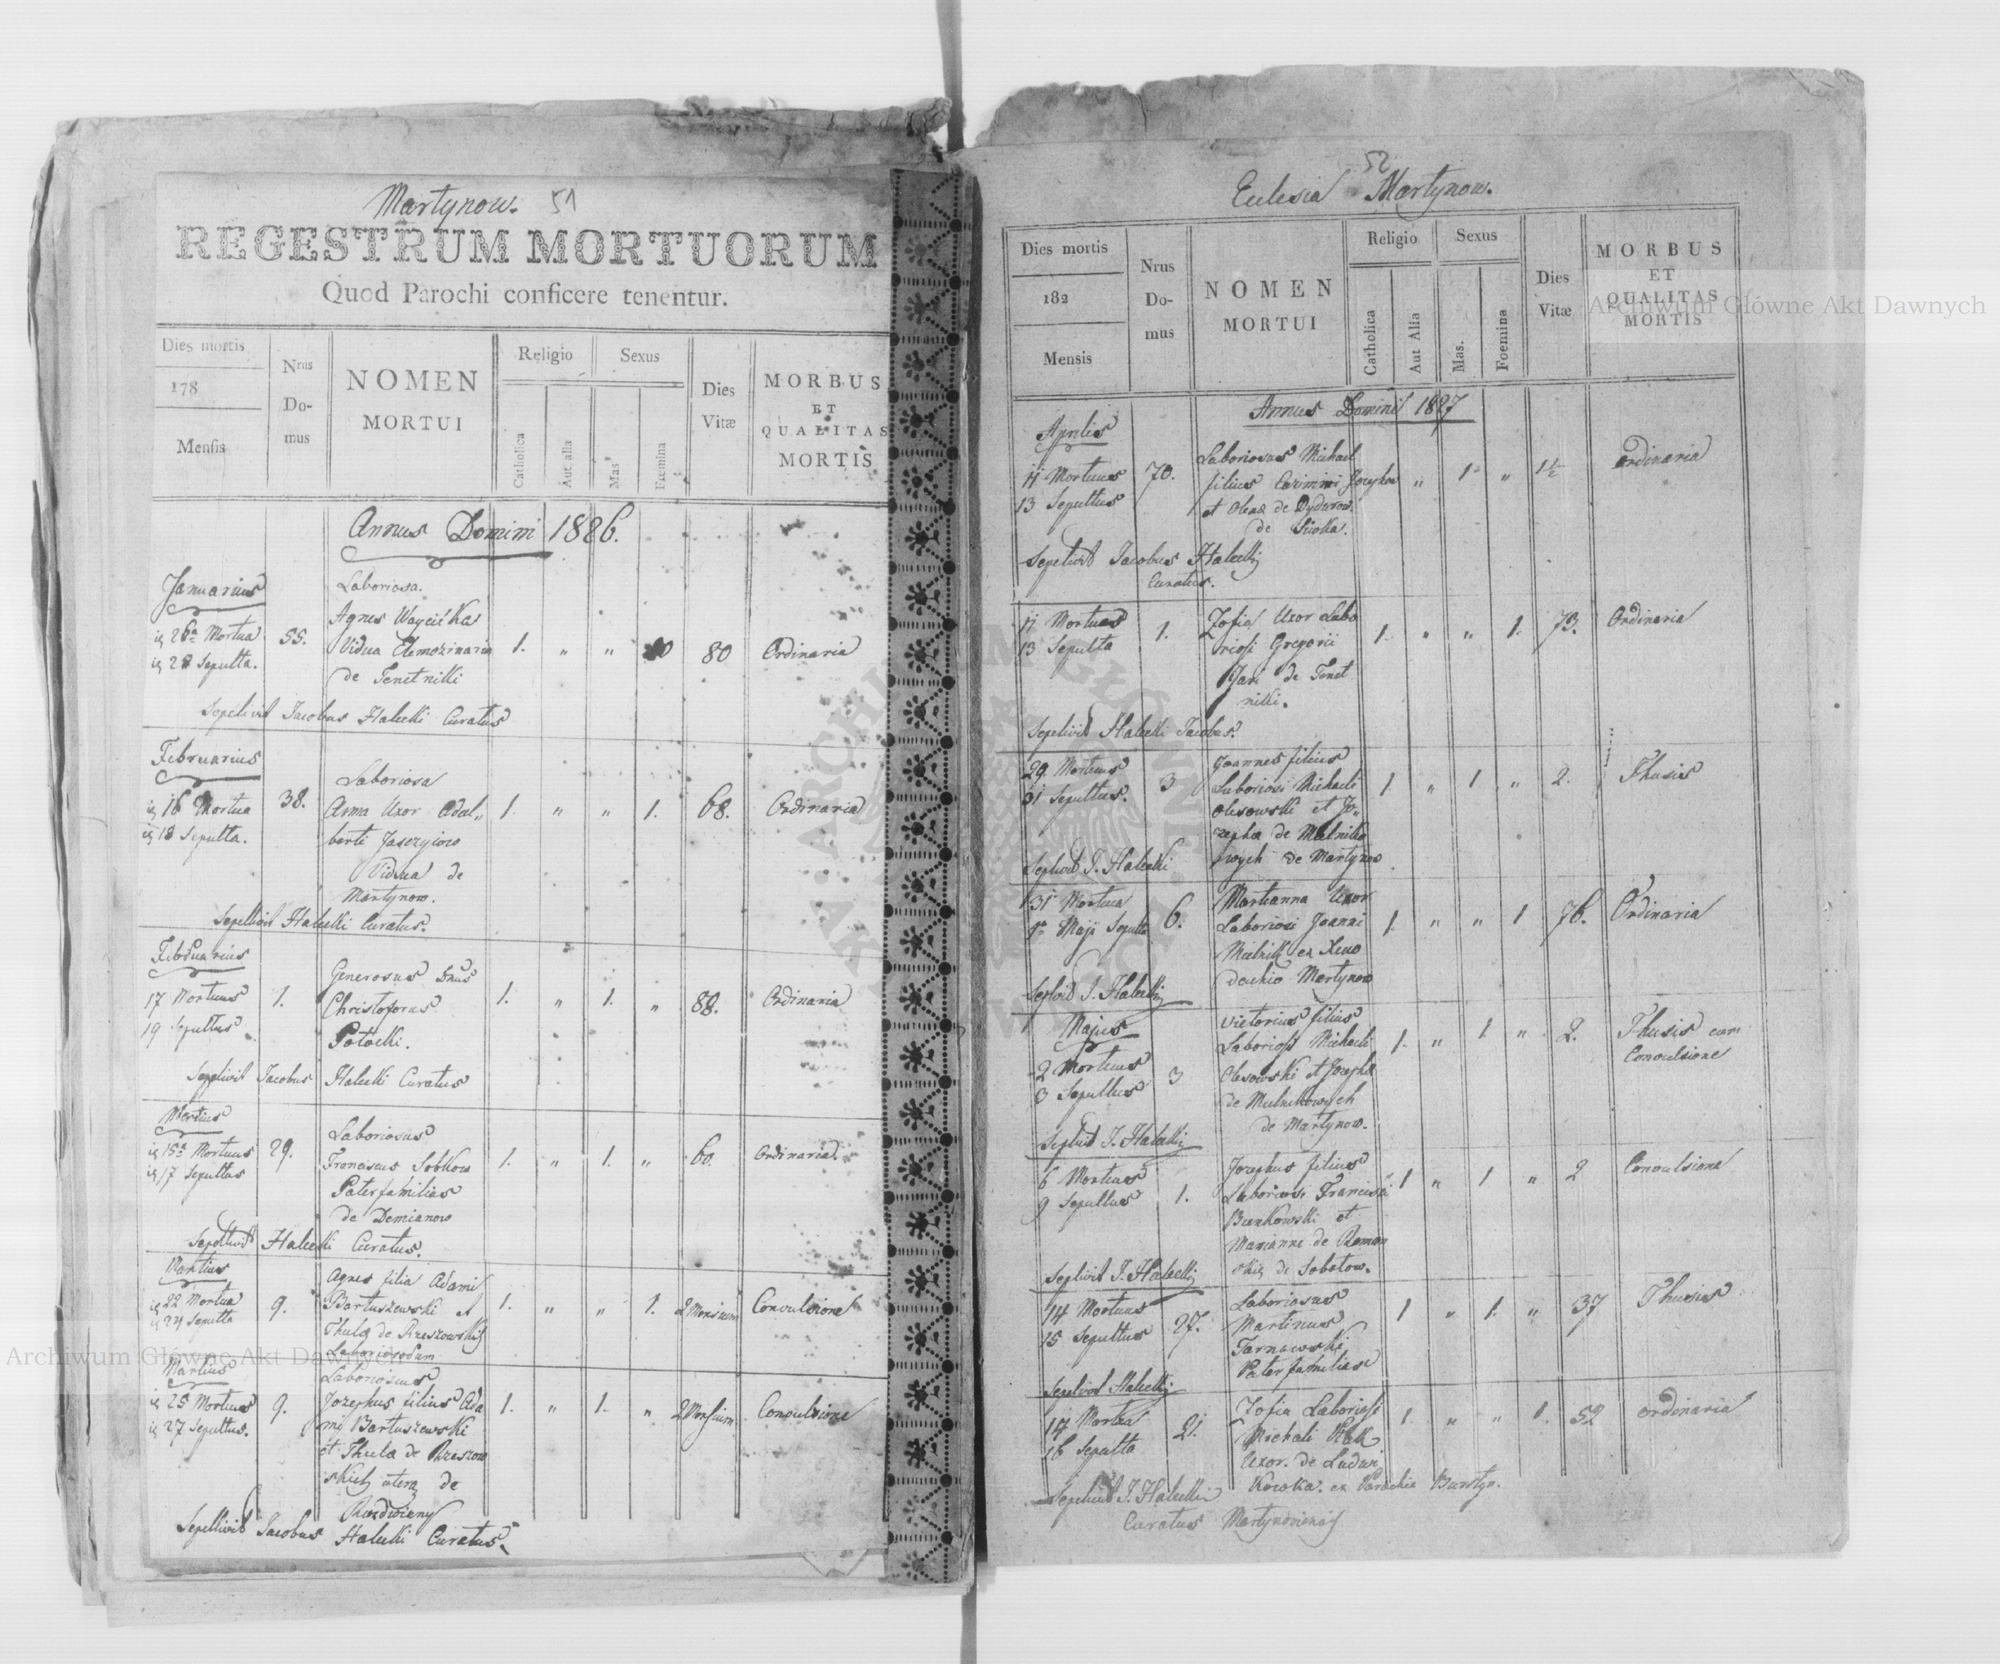 Martynow. 51
REGESTRUM MORTUORUM
Quod Parochi conficere tenentur.
Dies mortis
178
Mensis
Nrus
Do-
mus
NOMEN
MORTUI
Religio
Catholica
Aut alia
Sexus
Mas
Foemina
Dies
Vitæ
MORBUS
ET
QUALITAS
MORTIS
Annus Domini 1826.
Januarius
26a Mortua
28 Sepulta.
55.
Laboriosa
Agnes
Vidua
de Tenetniki
1. " " 80 Ordinaria
Sepelivit Jacobus Halecki Curatus
Februarius
16 Mortua
18 Sepulta.
38.
Laboriosa
Anna Uxor Adal„
berti
Vidua de
Martynow.
1. " " 1. 68. Ordinaria
Sepellivit Halecki Curatus.
Februarius
17 Mortuus
19 Sepultus
1.
Generosus Dnus
Christoforus
Potocki.
1. " 1. " 88. Ordinaria
Sepelivit Jacobus Halecki Curatus
Martius
15a Mortuus
17 Sepultus
29.
Laboriosus
Franciscus Sobkow
Paterfamilias
de Demianow
1. " 1. " 60 Ordinaria.
Sepellivit Halecki Curatus.
Martius
22 Mortua
24 Sepulta
9.
Agnes filia Adami
Bartuszewski et
Thula de
1. " " 1. 2 Mensium Convulsione
Martius
25 Mortuus
27 Sepultus.
9.
Laboriosus
Josephus filius Ada
mi Bartuszewski
et Thula de Rzeszow
skich de
1. " 1. " 2 Mensium Convulsione
Sepellivit Jacobus Halecki Curatus.
52
Eclesia Martynow.
Dies mortis
182
Mensis
Nrus
Do-
mus
NOMEN
MORTUI
Religio
Catholica
Aut Alia
Sexus
Mas.
Foemina
Dies
Vitæ
MORBUS
ET
QUALITAS
MORTIS
Annus Domini 1827
Aprilis
11 Mortuus
13 Sepultus
70.
Laboriosus Michael
filius
et Olena de
de
" 1 " 1½ ordinaria
Sepelivit Jacobus Halecki
Curatus.
11 Mortua
13 Sepulta
1.
Zofia Uxor Labo
riosi Gregorii
de Tenet
niki.
1. " " 1. 73. Ordinaria
Sepelivit Halecki Jacobus.
29 Mortuus
31 Sepultus.
3
Joannes filius
Laboriosi Michaeli
Olesowski et Jo-
zepha de Mielniko
wych de Martynow
1 " 1 " 2. Thusis
Sepelivit J. Halecki
31 Mortua
1a Maji Sepulta
6.
Marianna Uxor
Laboriosi Joanni
Mielnik ex
Martynow
1. " " 1 76. Ordinaria
Sepelivit J. Halecki
Majus
2 Mortuus
3 Sepultus
3
Victorius filius
Laboriosi Michaeli
Olesowski et Jozepha
de Mielnikowych
de Martynow.
1. " 1 " 2. Thusis cum
Convulsione
Sepelivit J. Halecki
6 Mortuus
9 Sepultus
1.
Jozephus filius
Laboriosi Francisci
Bienkowski et
Marianni de Roman
de Sobotow.
1 " 1 " 2 Convulsione
Sepelivit J. Halecki
14 Mortuus
15 Sepultus
27.
Laboriosus
Martinus
Tarnawski
Paterfamilias
1 " 1. " 37 Thusis
Sepelivit Halecki
14 Mortua
16 Sepulta
21.
Zofia Laboriosi
Michaeli
Uxor. de
ex Parochia Bursztyn.
1. " " 1. 52 ordinaria
Sepelivit J. Halecki
Curatus Martynoviensis
Archiwum Główne Akt Dawnych
Archiwum Główne Akt Dawnych